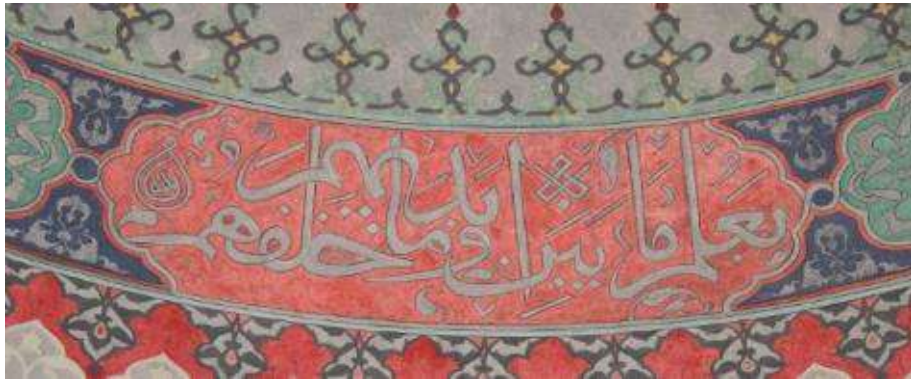 يَعْلَمُ مَا بَيْنَ أَيْدِيهِمْ وَمَا خَلْفَهُمْ